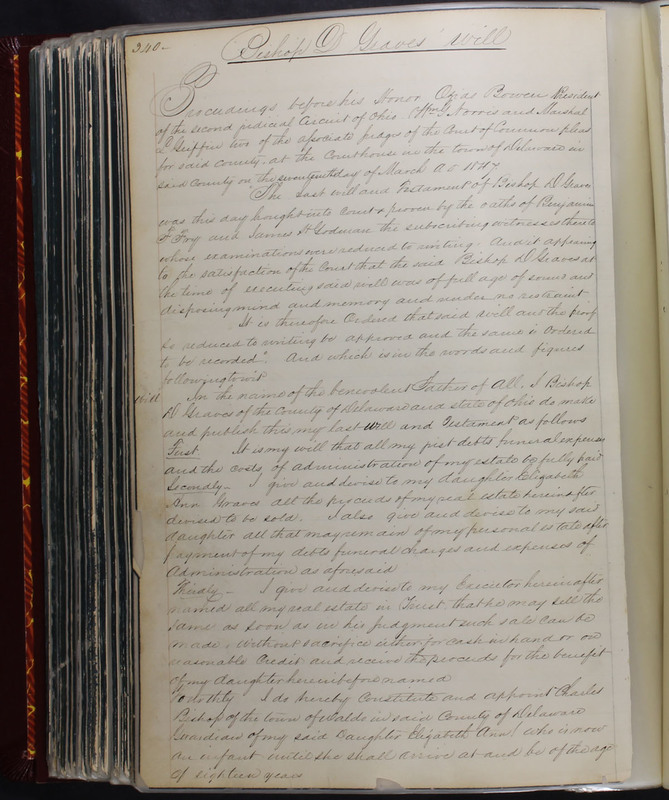 340-
Bishop D Graves' Will
Proceedings before his Honor Ozias Bowen President
of the second judicial Circuit of Ohio Wm G. Norris and Marshal
L Griffin two of the associate judges of the Court of Common pleas
for said County, at the Courthouse in the town of Delaware in
said County on the seventeenth day of March A D 1847
The last will and Testament of Bishop D Graves
was this day brought into Court & proven by the oaths of Benjamin
F Fry and James H Godman the subscribing witnesses thereto
whose examinations were reduced to writing. And it appearing
to the satisfaction of the Court that the said Bishop D Graves at
the time of executing said will was of full age of sound and
disposing mind and memory and under no restraint
It is therefore Ordered that said will and the proof
so reduced to writing be approved and the same is Ordered
to be recorded". And which is in the words and figures
following towit
Will In the name of the benevolent Father of All. I Bishop
D Graves of the County of Delaware and state of Ohio do make
and publish this my last will and Testament as follows
First It is my will that all my just debts funeral expenses
and the costs of administration of my estate be fully paid
Secondly- I give and devise to my daughter Elizabeth
Ann Graves all the proceeds of my real estate hereinafter
devised to be sold. I also give and devise to my said
daughter all that may remain of my personal estate after
payment of my debts funeral charges and expenses of
Administration as aforesaid
Thirdly- I give and devise to my Executor hereinafter
named all my real estate in Trust that he may sell the
same as soon as in his judgment such sale can be
made, without sacrifice either for cash in hand or on
reasonable Credit and receive the proceeds for the benefit
of my daughter hereinbefore named
I do hereby Constitute and appoint Charles
Bishop of the town of Waldo in said County of Delaware
Guardian of my said Daughter Elizabeth Ann who is now
an infant until she shall arrive at and be of the age
of eighteen years